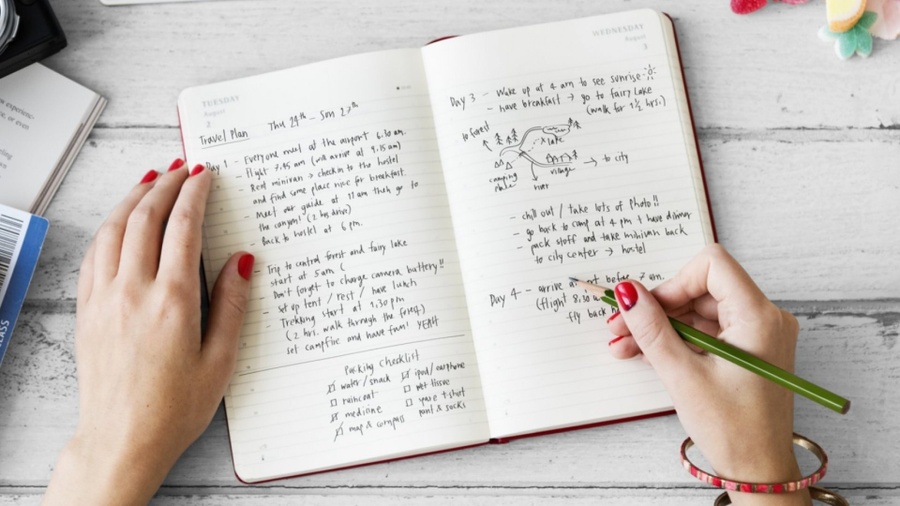 experience-
or even
TUESDAY
August
2
Travel Plan Thu 24th – Sun 27th
Day 1 - Everyone meet at the airport 6.30 am.
- Flight 7.45 am (will arrive at 9.15 am)
- Rent minivan → checkin to the hostel
and find some place nice for breakfast.
- Meet our guide at 11 am then go to
the canyon! (2 hrs drive)
- Back to hostel at 6 pm.
- Trip to central forest and fairy lake
start at 5 am (
- Don't forget to charge camera battery!!
- Set up tent / rest / have lunch
- Trekking start at 1.30 pm
(2 hrs. walk through the forest)
- set campfire and have fun! YEAH
Packing Checklist
water/snack
raincoat
medicine
map & compass
ipod/earphone
wet tissue
spare t-shirt
pant & socks
WEDNESDAY
August
3
Day 3 - Wake up at 4 am to see sunrise
- have breakfast → go to fairy Lake
(walk for 1½ hrs.)
to forest
lake
camping
village
→ to city
river
- chill out / take lots of photo!!
- go back to camp at 4 pm & have dinner
- pack stuff and take minivan back
to city center → hostel
Day 4 - arrive before 7 am.
(flight 8.30
fly back